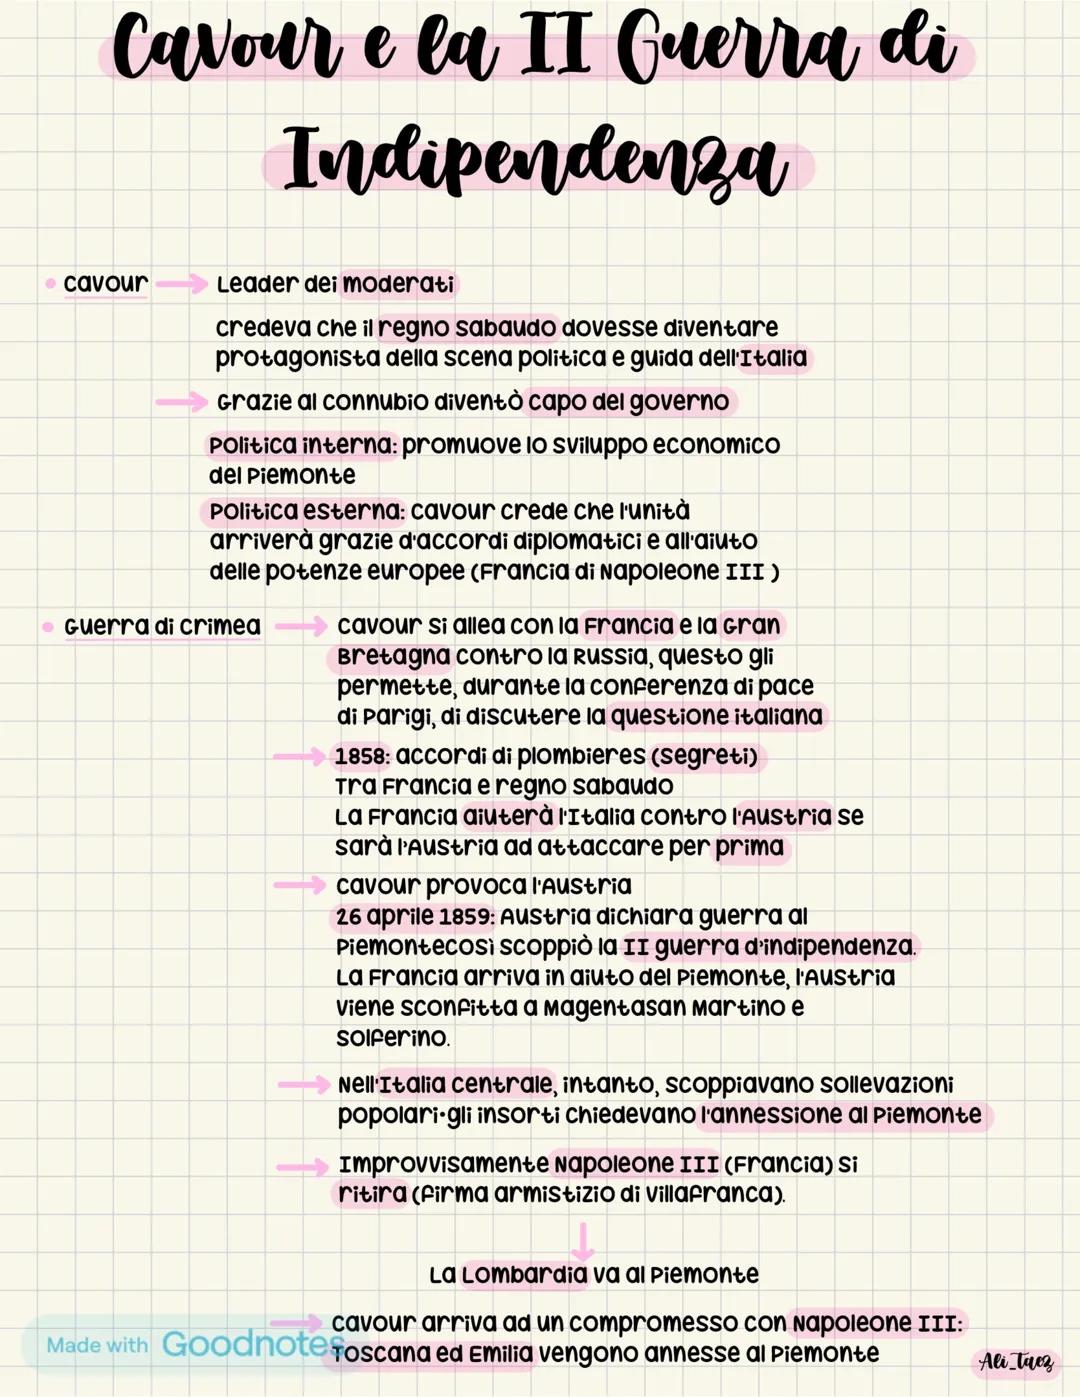 Cavour e la II Guerra di
Indipendenza
• Cavour → Leader dei moderati
credeva che il regno sabaudo dovesse diventare
protagonista della scena politica e guida dell'Italia
→ Grazie al connubio diventò capo del governo
Politica interna: promuove lo sviluppo economico
del Piemonte
Politica esterna: Cavour crede che l'unità
arriverà grazie d'accordi diplomatici e all'aiuto
delle potenze europee (Francia di Napoleone III )
• Guerra di crimea → Cavour si allea con la Francia e la Gran
Bretagna contro la Russia, questo gli
permette, durante la conferenza di pace
di Parigi, di discutere la questione italiana
→ 1858: accordi di plombieres (segreti)
Tra Francia e regno sabaudo
La Francia aiuterà l'Italia contro l'Austria se
sarà l'Austria ad attaccare per prima
→ Cavour provoca l'Austria
26 aprile 1859: Austria dichiara guerra al
Piemontecosì scoppiò la II guerra d'indipendenza.
La Francia arriva in aiuto del Piemonte, l'Austria
viene sconfitta a Magentasan Martino e
Solferino.
→ Nell'Italia centrale, intanto, scoppiavano sollevazioni
popolari•gli insorti chiedevano l'annessione al Piemonte
→ Improvvisamente Napoleone III (Francia) si
ritira (firma armistizio di Villafranca).
↓
La Lombardia va al Piemonte
→ Cavour arriva ad un compromesso con Napoleone III:
Toscana ed Emilia vengono annesse al Piemonte
Made with Goodnotes
Ali_Taez